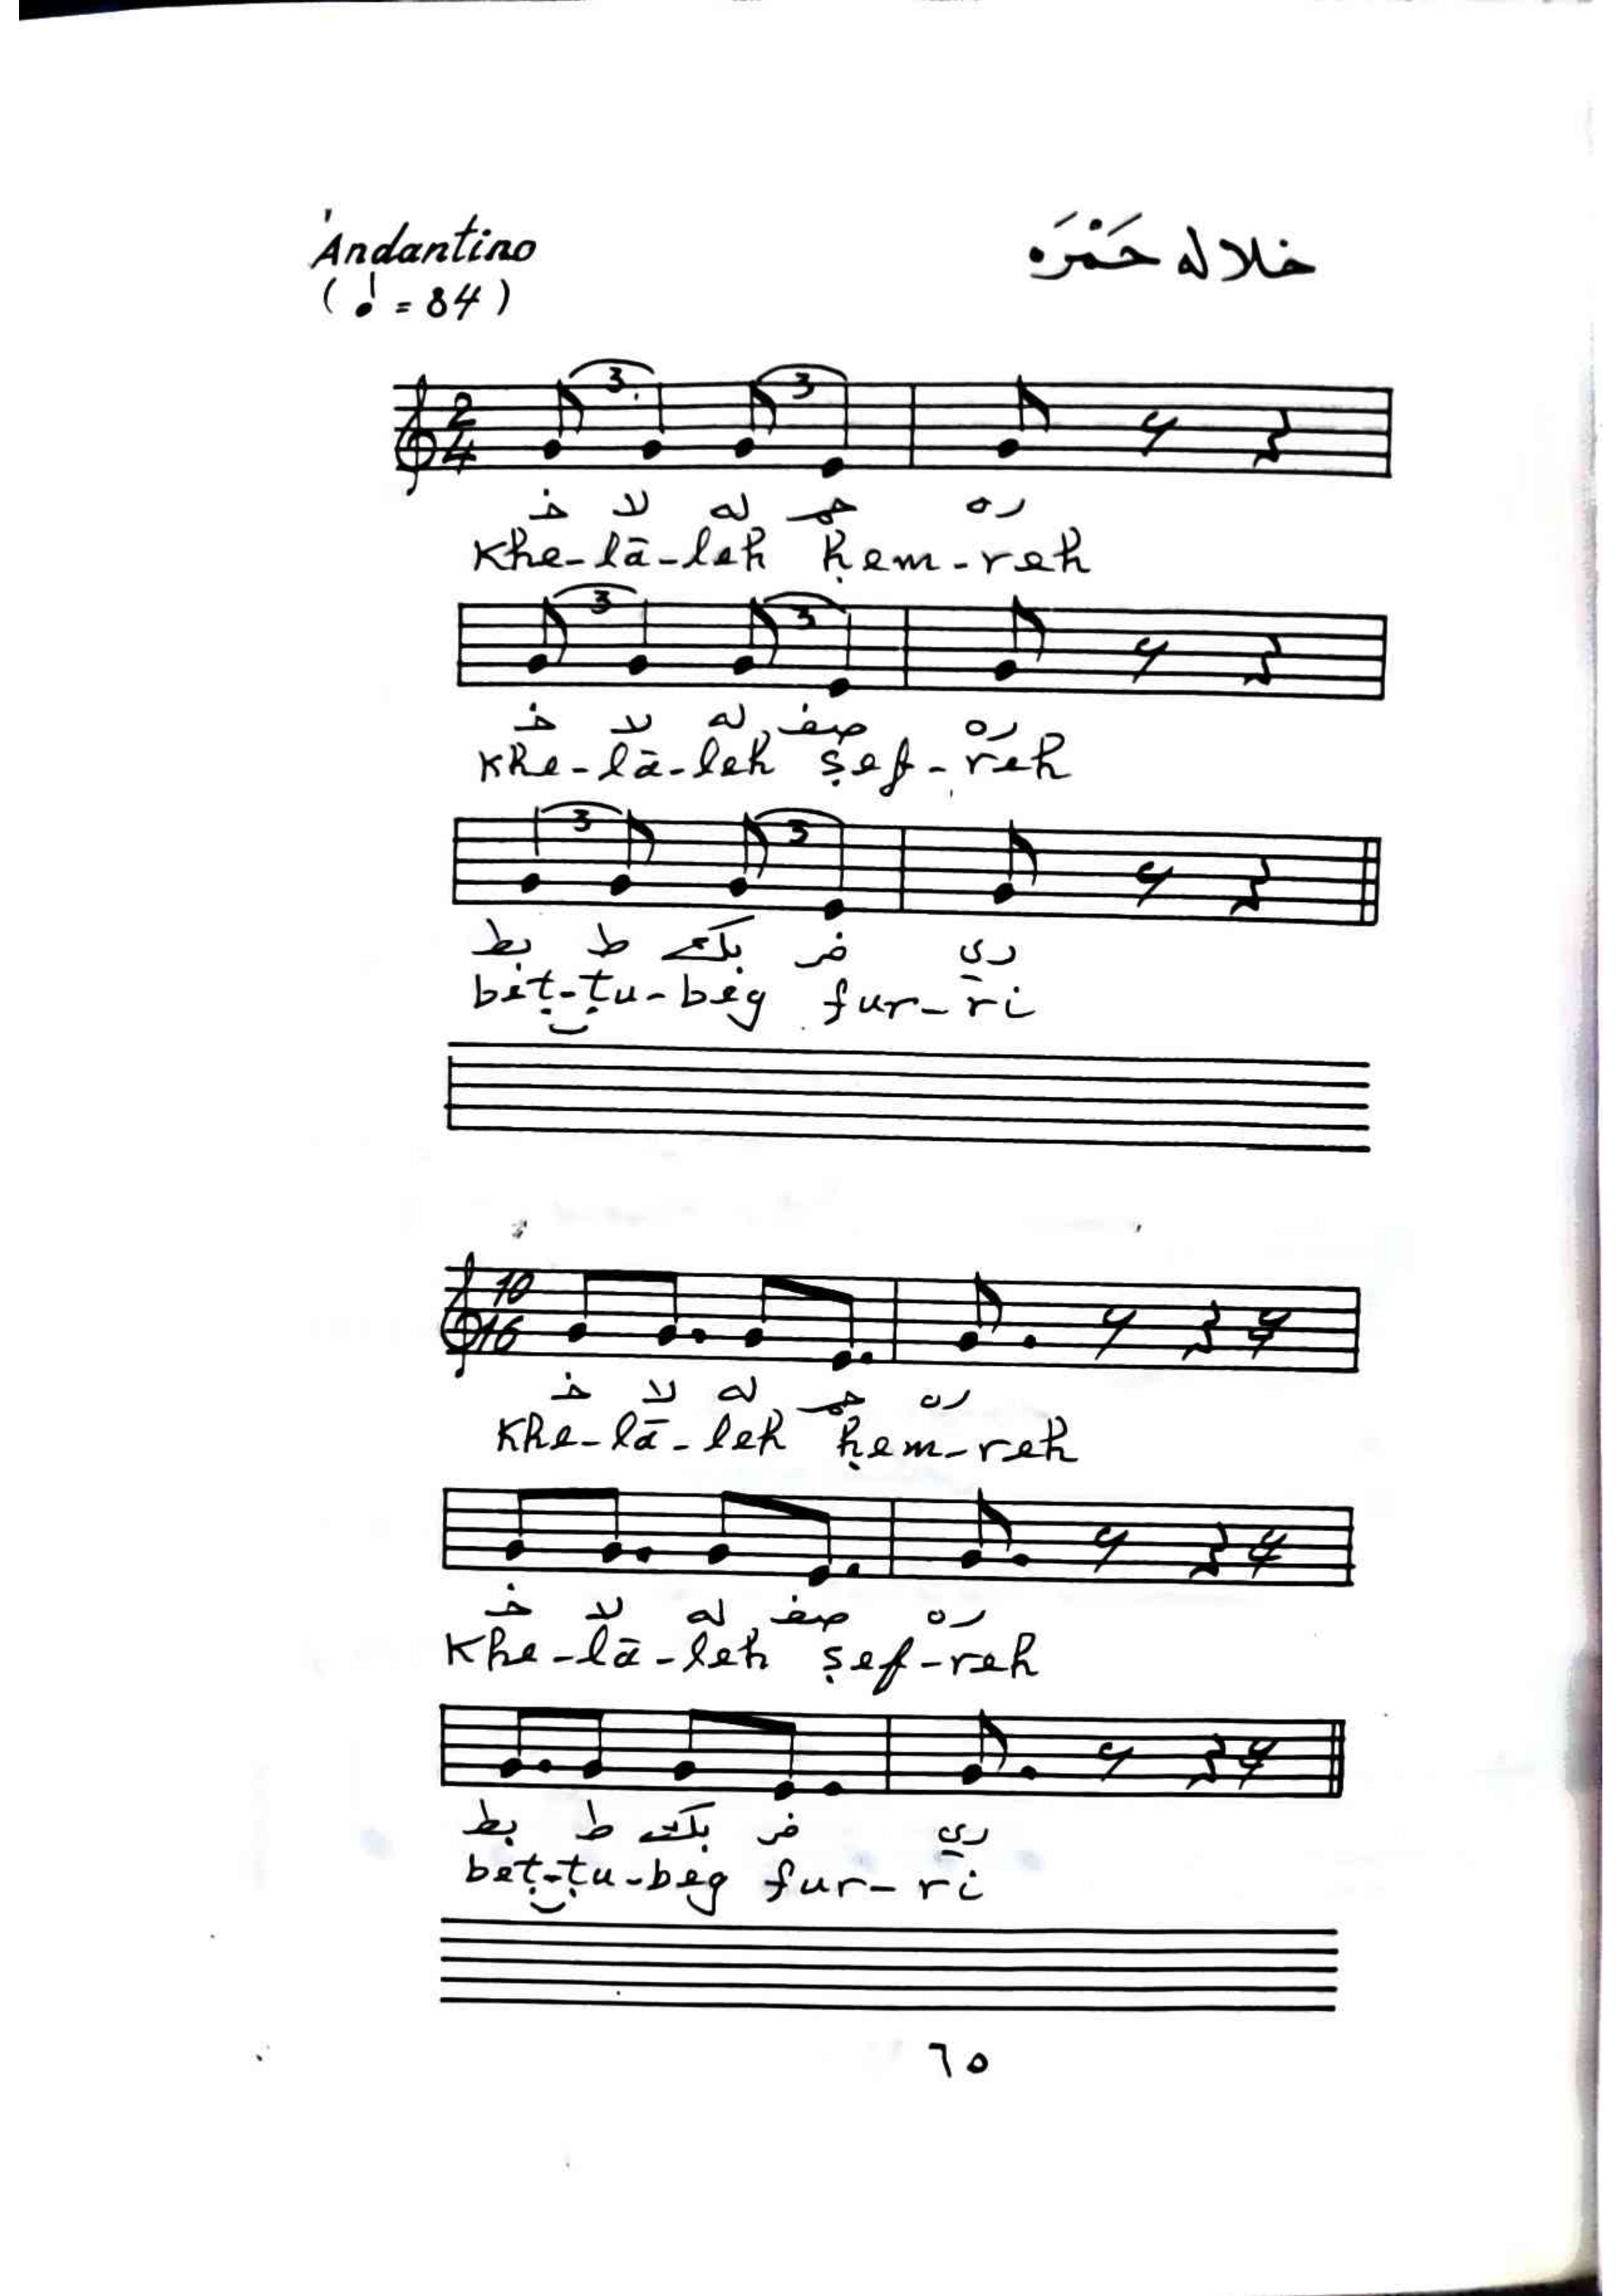 Andantino
خلاله حَمْرَه
(♩ = 84)
2
4
3 3
خـ لا له حمـ ره
Khe-lā-leh ḥem-reh
3 3
خـ لا له صفـ ره
Khe-lā-leh ṣef-reh
3 3
بط ط بگ فر ري
beṭ-ṭu-beg fur-ri
10
16
خـ لا له حمـ ره
Khe-lā-leh ḥem-reh
خـ لا له صفـ ره
Khe-lā-leh ṣef-reh
بط ط بگ فر ري
beṭ-ṭu-beg fur-ri
٦٥